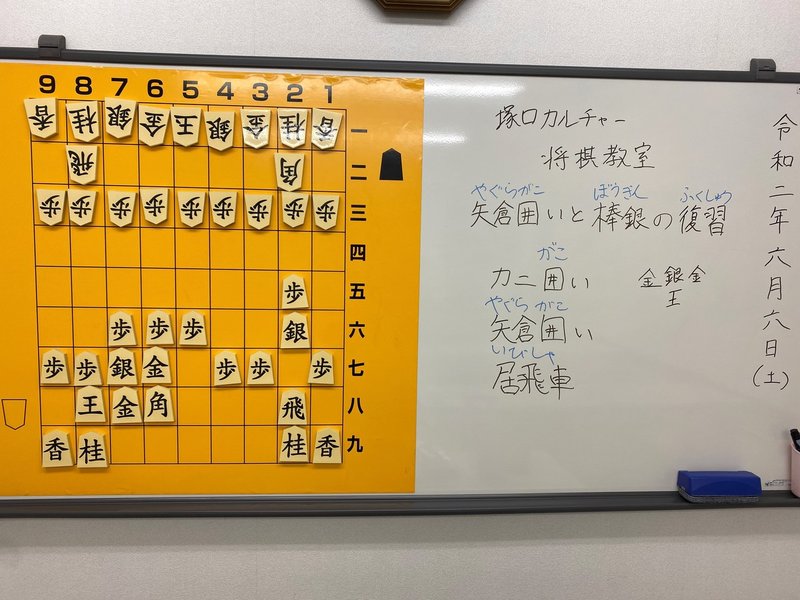 9 8 7 6 5 4 3 2 1
香 桂 銀 金 王 銀 金 桂 香 一
飛 角 二
歩 歩 歩 歩 歩 歩 歩 歩 歩 三
四
歩 五
歩 歩 歩 銀 六
歩 歩 銀 金 歩 歩 歩 七
王 金 角 飛 八
香 桂 桂 香 九
塚口カルチャー
将棋教室
やぐらがこ ぼうぎん ふくしゅう
矢倉囲いと棒銀の復習
がこ
カニ囲い 金銀金
王
やぐら がこ
矢倉囲い
いびしゃ
居飛車
令和二年六月六日(土)